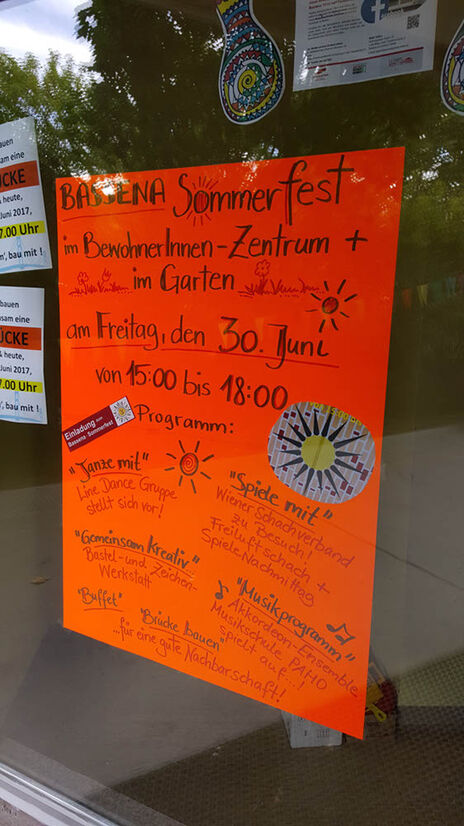 BASSENA Sommerfest
im BewohnerInnen-Zentrum +
im Garten
am Freitag, den 30. Juni
von 15:00 bis 18:00
Einladung zum
Bassena-Sommerfest
Programm:
"Tanze mit"
Line Dance Gruppe
stellt sich vor!
"Spiele mit"
Wiener Schachverband
zu Besuch!
Freiluftschach +
SpieleNachmittag
"Gemeinsam Kreativ"
Bastel-und Zeichen-
Werkstatt
"Buffet"
"Musikprogramm"
Akkordeon-Ensemble
Musikschule PAHO
spielt auf..!
"Brücke bauen"
...für eine gute Nachbarschaft!
auen
sam eine
ÜCKE
& heute,
Juni 2017,
7.00 Uhr
n', bau mit !
bauen
sam eine
ÜCKE
& heute,
Juni 2017,
7.00 Uhr
, bau mit !